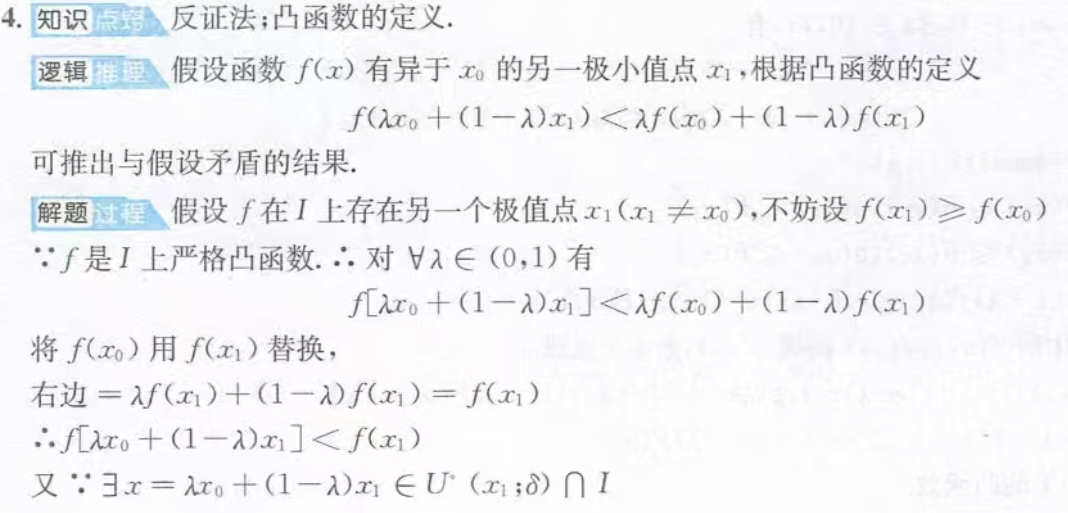 4. 知识点窍 反证法;凸函数的定义.
逻辑推理 假设函数 f(x) 有异于 x₀ 的另一极小值点 x₁,根据凸函数的定义
f(λx₀+(1-λ)x₁)<λf(x₀)+(1-λ)f(x₁)
可推出与假设矛盾的结果.
解题过程 假设 f 在 I 上存在另一个极值点 x₁(x₁≠x₀),不妨设 f(x₁)⩾f(x₀)
∵f 是 I 上严格凸函数.∴对 ∀λ∈(0,1) 有
f[λx₀+(1-λ)x₁]<λf(x₀)+(1-λ)f(x₁)
将 f(x₀) 用 f(x₁) 替换,
右边=λf(x₁)+(1-λ)f(x₁)=f(x₁)
∴f[λx₀+(1-λ)x₁]<f(x₁)
又∵∃x=λx₀+(1-λ)x₁∈U°(x₁;δ)∩I